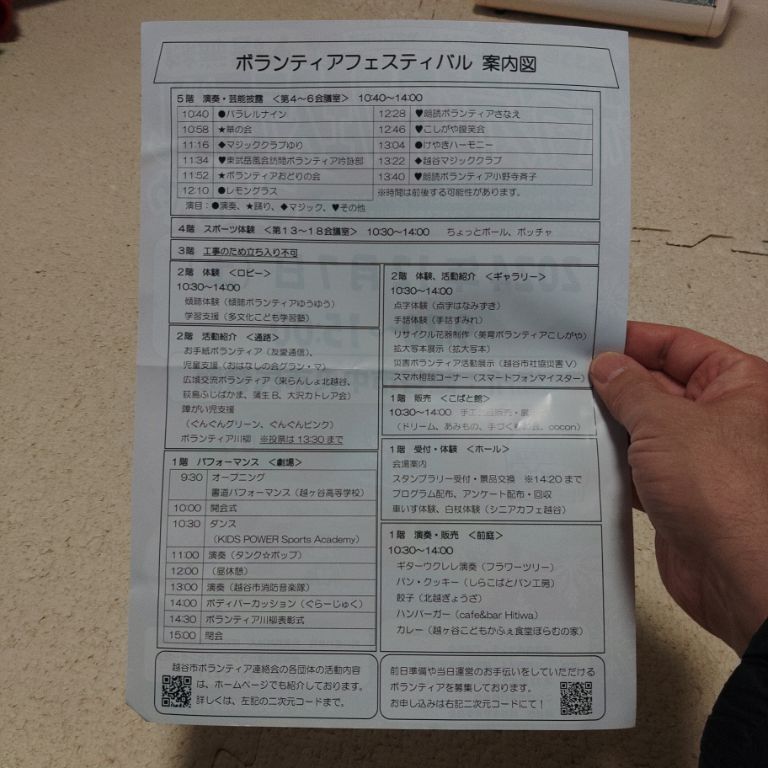 ボランティアフェスティバル 案内図
5階 演奏・芸能披露 <第4~6会議室> 10:40~14:00
10:40 ●パラレルナイン
10:58 ★華の会
11:16 ◆マジッククラブゆり
11:34 ♥東武岳風会訪問ボランティア吟詠部
11:52 ★ボランティアおどりの会
12:10 ●レモングラス
12:28 ♥朗読ボランティアさなえ
12:46 ♥こしがや謾笑会
13:04 ●けやきハーモニー
13:22 ◆越谷マジッククラブ
13:40 ♥朗読ボランティア小野寺斉子
※時間は前後する可能性があります。
演目:●演奏、★踊り、◆マジック、♥その他
4階 スポーツ体験 <第13~18会議室> 10:30~14:00 ちょっとボール、ボッチャ
3階 工事のため立ち入り不可
2階 体験 <ロビー>
10:30~14:00
傾聴体験(傾聴ボランティアゆうゆう)
学習支援(多文化こども学習塾)
2階 活動紹介 <通路>
お手紙ボランティア(友愛通信)、
児童支援(おはなしの会グラン・マ)
広域交流ボランティア(来らんしょ北越谷、
荻島ふじばかま、蒲生B、大沢カトレア会)
障がい児支援
(ぐんぐんグリーン、ぐんぐんピンク)
ボランティア川柳 ※投票は13:30まで
1階 パフォーマンス <劇場>
9:30 オープニング
書道パフォーマンス(越ヶ谷高等学校)
10:00 開会式
10:30 ダンス
(KIDS POWER Sports Academy)
11:00 演奏(タンク☆ポップ)
12:00 (昼休憩)
13:00 演奏(越谷市消防音楽隊)
14:00 ボディパーカッション(ぐらーじゅく)
14:30 ボランティア川柳表彰式
15:00 閉会
2階 体験、活動紹介 <ギャラリー>
10:30~14:00
点字体験(点字はなみずき)
手話体験(手話すみれ)
リサイクル花器制作(美育ボランティアこしがや)
拡大写本展示(拡大写本)
災害ボランティア活動展示(越谷市社協災害V)
スマホ相談コーナー(スマートフォンマイスター)
1階 販売 <こばと館>
10:30~14:00 手工芸品販売・展
(ドリーム、あみもの、手づくりの会、cocon)
1階 受付・体験 <ホール>
会場案内
スタンプラリー受付・景品交換 ※14:20まで
プログラム配布、アンケート配布・回収
車いす体験、白杖体験(シニアカフェ越谷)
1階 演奏・販売 <前庭>
10:30~14:00
ギターウクレレ演奏(フラワーツリー)
パン・クッキー(しらこばとパン工房)
餃子(北越ぎょうざ)
ハンバーガー(cafe&bar Hitiwa)
カレー(越ヶ谷こどもかふぇ食堂ぽらむの家)
越谷市ボランティア連絡会の各団体の活動内容
は、ホームページでも紹介しております。
詳しくは、左記の二次元コードまで。
前日準備や当日運営のお手伝いをしていただける
ボランティアを募集しております。
お申し込みは右記二次元コードにて!